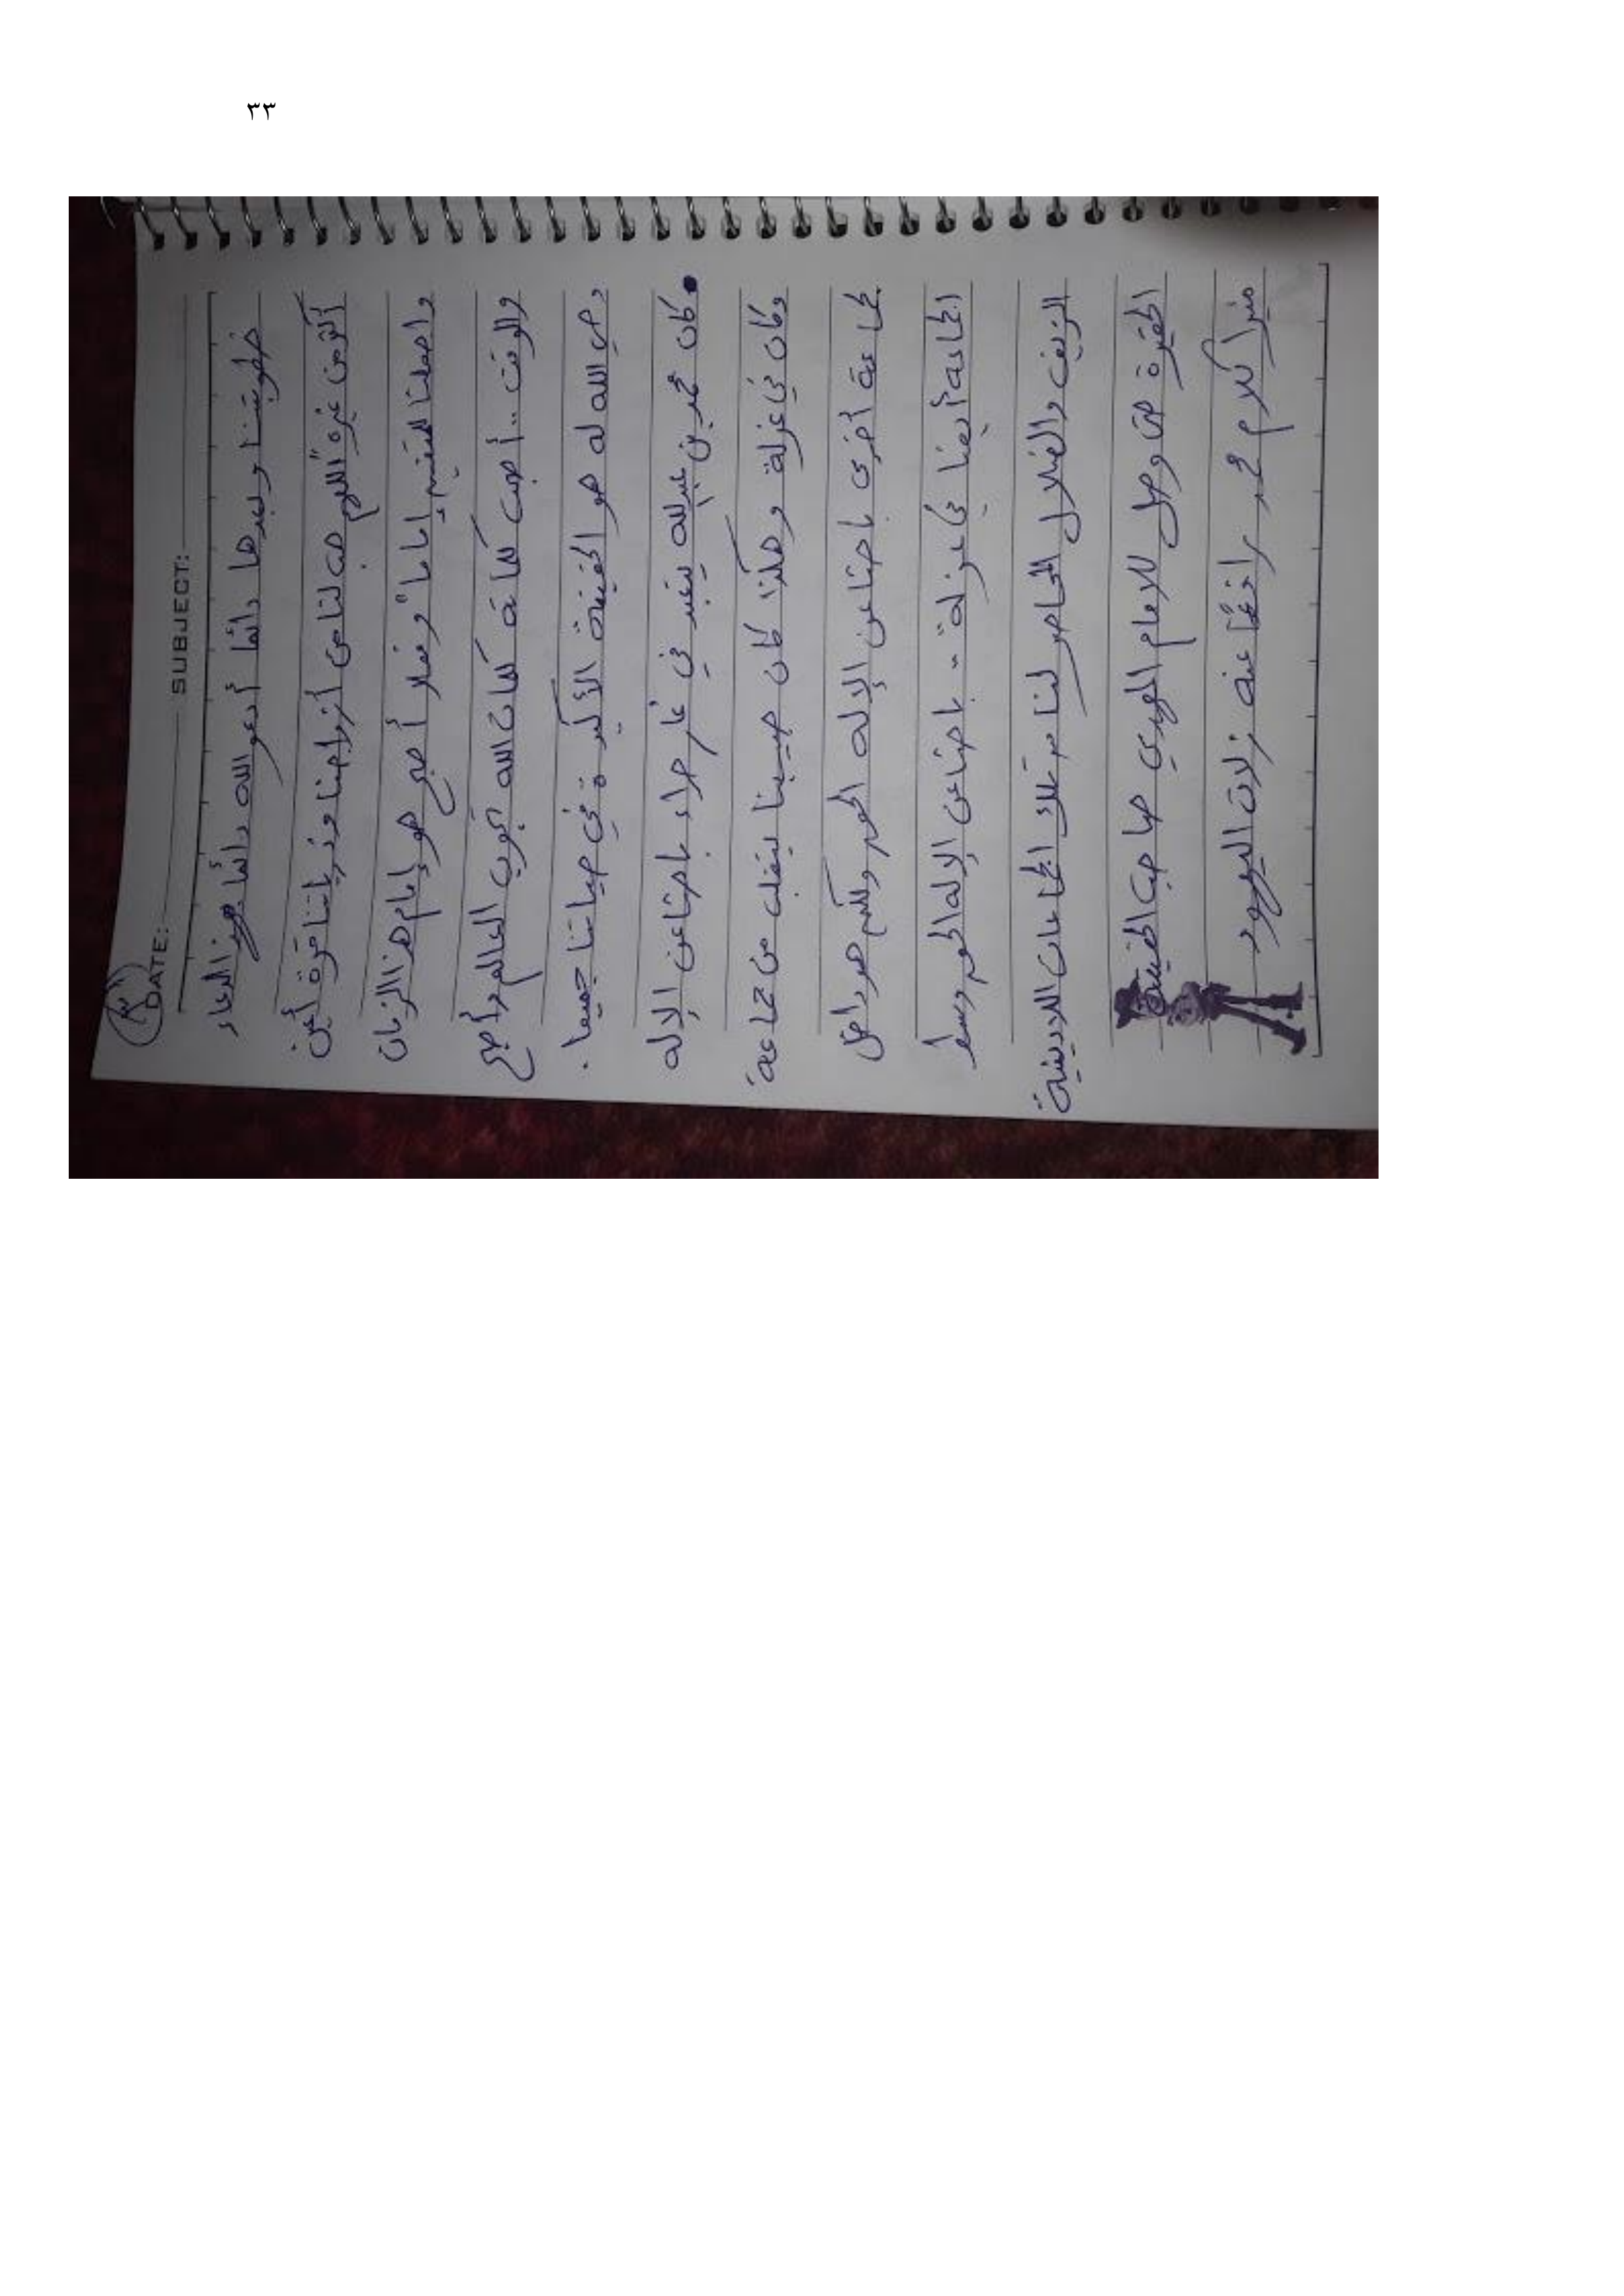 ٣٣
"٣"
DATE: SUBJECT:
خطوبتنا وبعدها دائما أدعو الله دائما بهذا الدعاء
أكثر من غيره "اللهم هب لنا من أزواجنا وذرياتنا قرة أعين
واجعلنا للمتقين إماما" وفعلا أصبح هو إمام هذا الزمان
والوقت .. أصبت كلمة كلمات الله تجوب العالم وأصبح
وحي الله له هو الحقيقة الأكيدة في حياتنا جميعا .
كان محمد بن عبدالله يتعبد في غار حراء باحثا عن الإله
وكان في عزلة وهكذا كان حبيبنا ينقلب من جماعة
لجماعة أخرى باحثا عن الإله الحق ولكنهم هو داخل
الجماعة أيضا في عزلة .. باحثا عن الإله الحق وسط
الزيف والضلال المحاصر لنا من تلك الجماعات اللادينية
الحقيرة حتى وصل للإمام المهدي صاحب الحقيقة
مفسرا كلام محمد رافعا عنه زلات اليهود